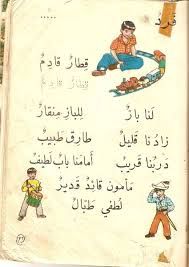 قرد
قِطارٌ قادِمٌ
قِطارٌ قادِمٌ
لَنا بازٌ لِلبازِ مِنقارٌ
زادُنا قَليلٌ طارِق طَبيبٌ
دَربُنا قَريبٌ أَمامَنا بابٌ لَطيفٌ
مَأمون قائِدٌ قَديرٌ
لُطفي طَبّالٌ